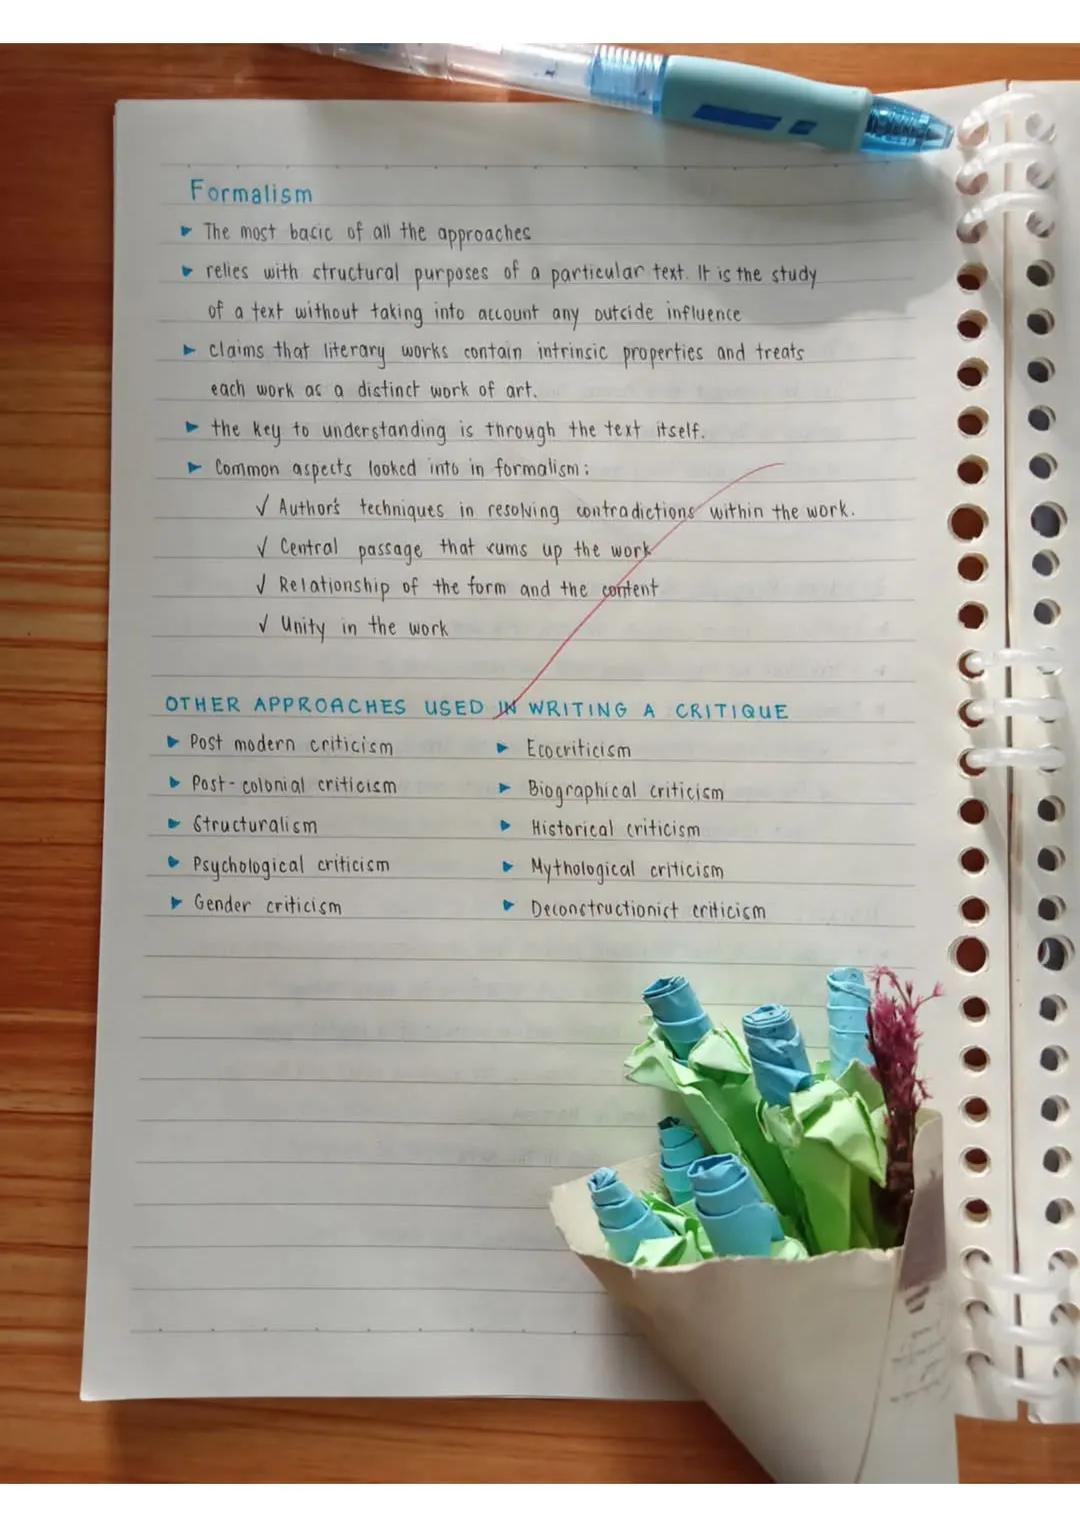 Formalism
▸ The most basic of all the approaches
▸ relies with structural purposes of a particular text. It is the study
of a text without taking into account any outside influence
▸ claims that literary works contain intrinsic properties and treats
each work as a distinct work of art.
▸ the key to understanding is through the text itself.
▸ Common aspects looked into in formalism:
✓ Author's techniques in resolving contradictions within the work.
✓ Central passage that sums up the work
✓ Relationship of the form and the content
✓ Unity in the work
OTHER APPROACHES USED IN WRITING A CRITIQUE
▸ Post modern criticism
▸ Post-colonial criticism
▸ Structuralism
▸ Psychological criticism
▸ Gender criticism
▸ Ecocriticism
▸ Biographical criticism
▸ Historical criticism
▸ Mythological criticism
▸ Deconstructionist criticism